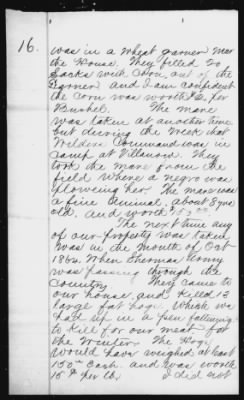 16.
was in a wheat garner near
the House. They filled 20
Sacks with Corn, out of the
Garner and I am confident
the Corn was worth $1. per
Bushel. The Mare
was taken at another time
but during the Week that
Wilders Command was in
Camp at Villanow. They
took the Mare from the
field where a Negro was
plowing her. The Mare was
a fine animal, about 8 yrs
old. and worth
The next time any
of our property was taken
was in the month of Oct
1864. When Sherman Army
was passing through the
Country They came to
our house and Killed 13
large fat hogs. Which we
had up in a pen fattening
to Kill for our meat for
the Winter. The Hogs
would have weighed at least
150 lbs each. and was worth
per lb. I did not